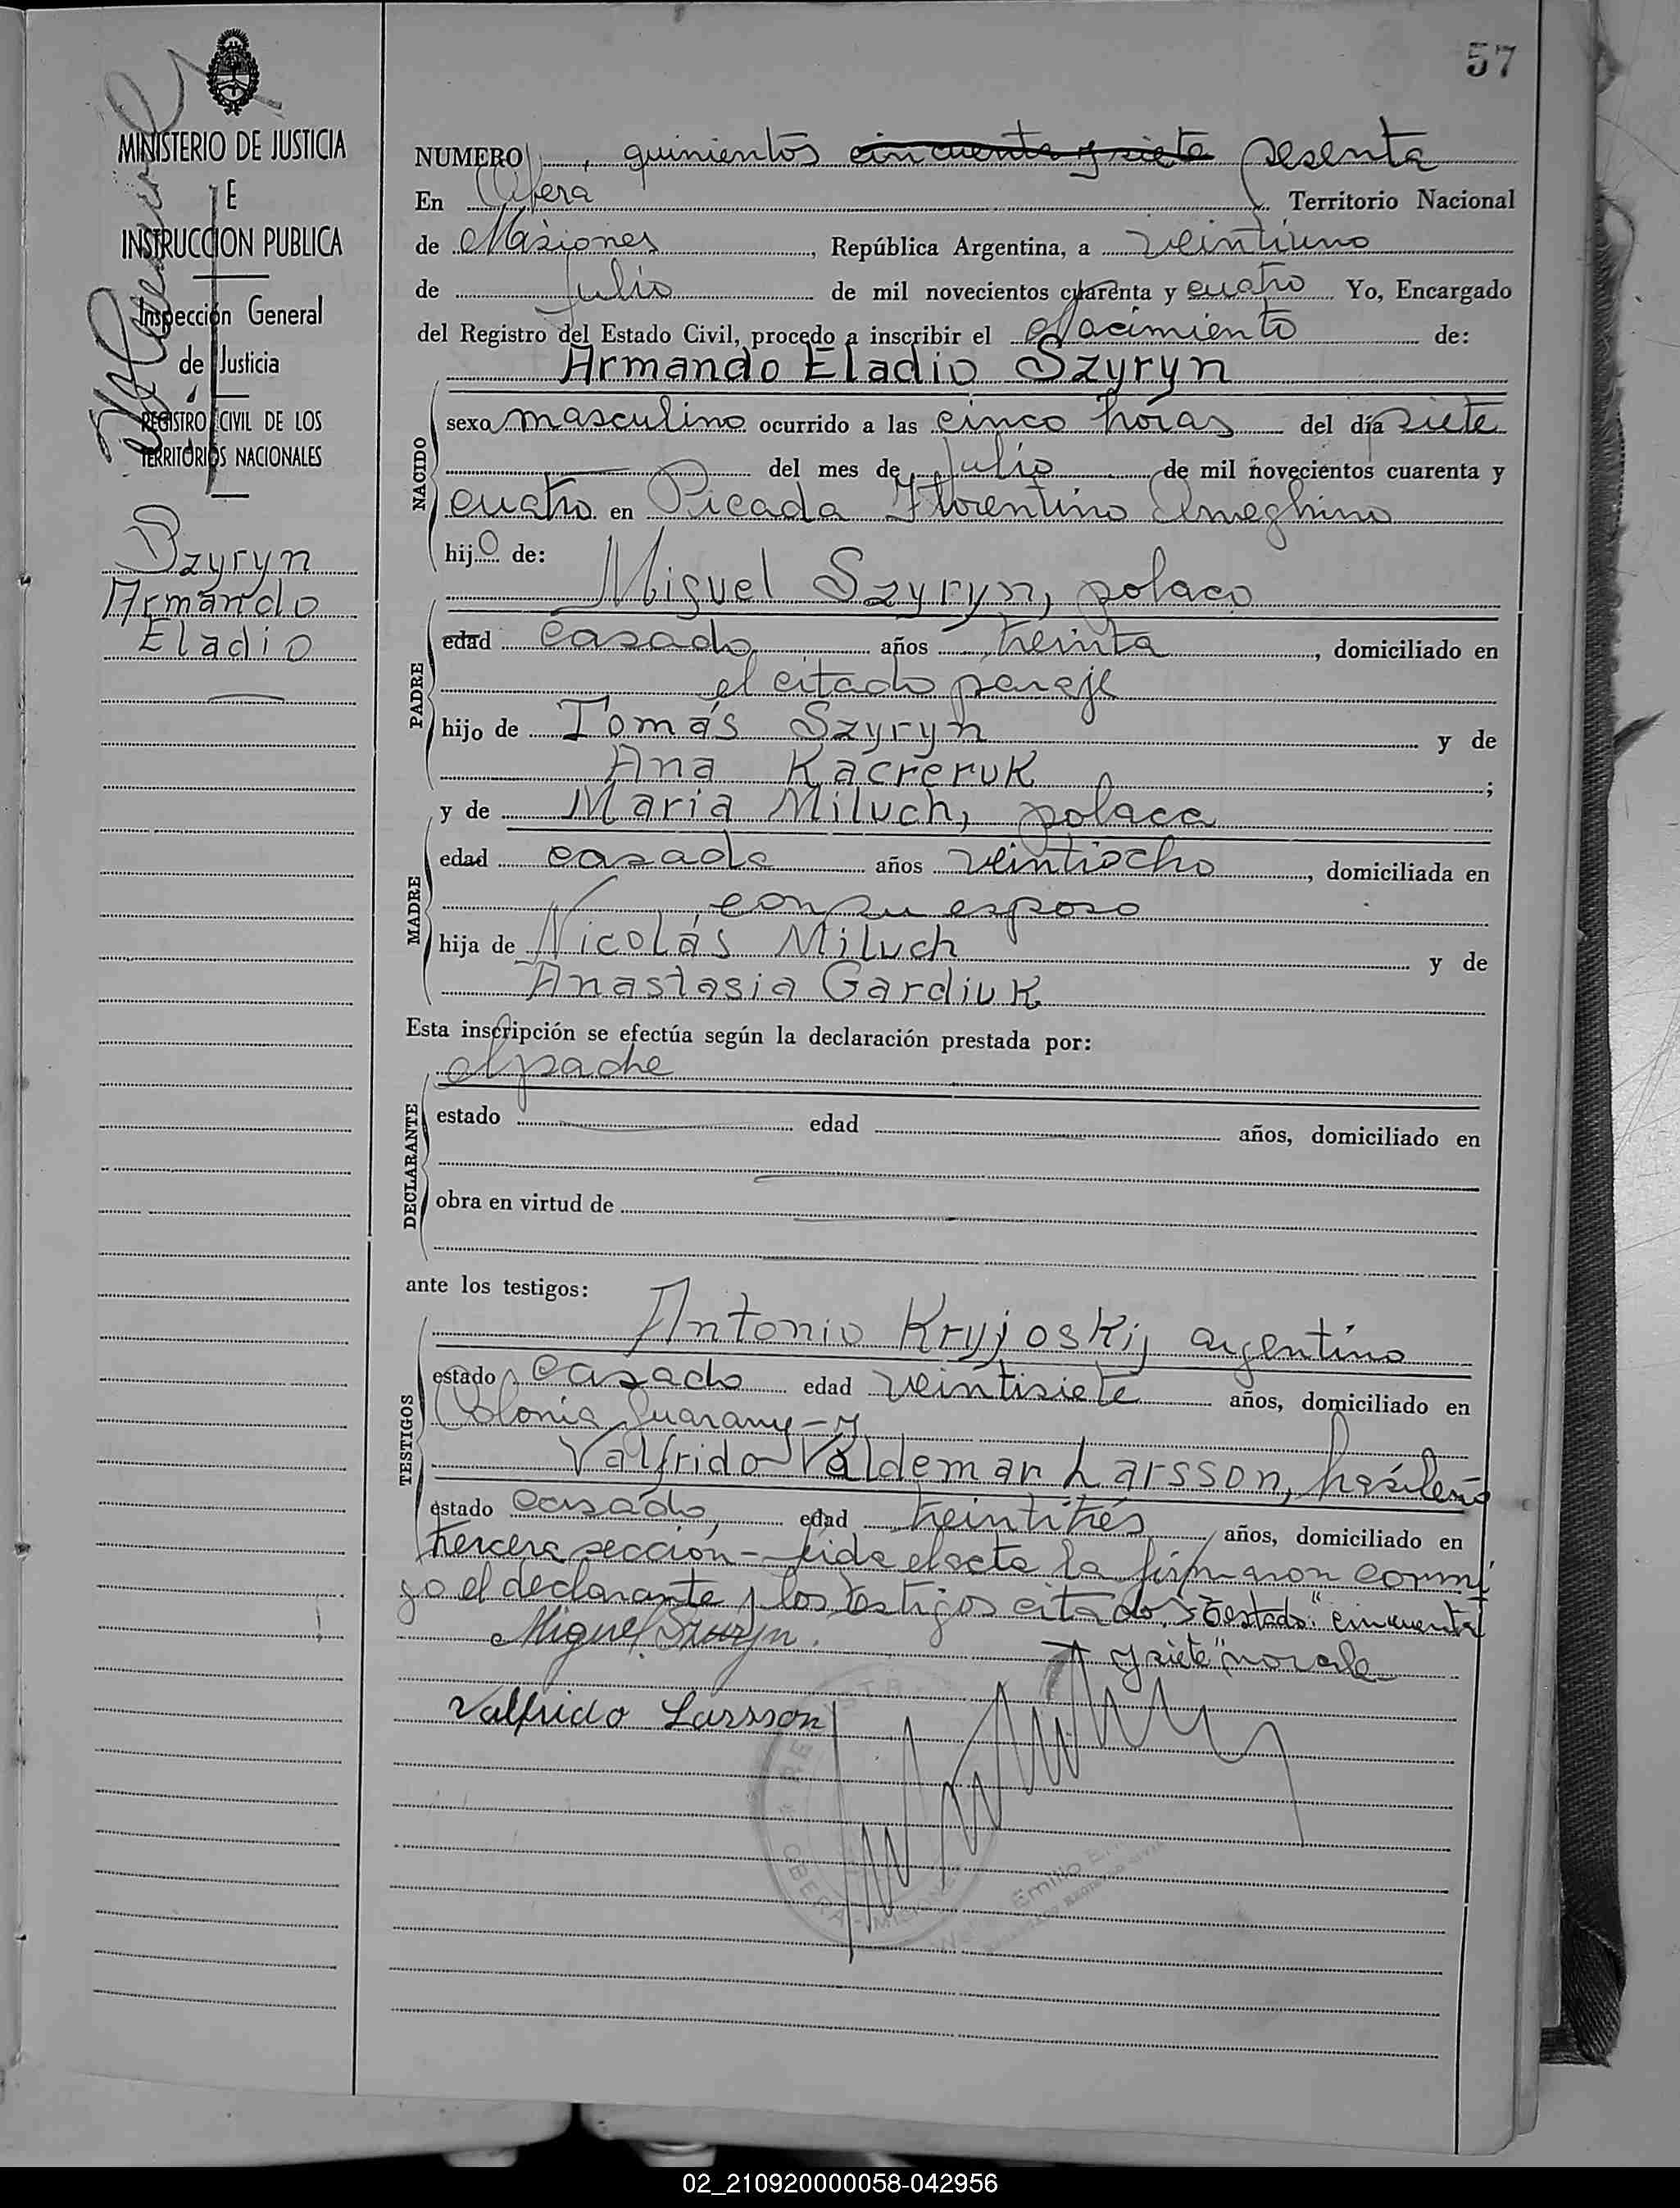 57
MINISTERIO DE JUSTICIA
E
INSTRUCCION PUBLICA
Inspección General
de Justicia
REGISTRO CIVIL DE LOS
TERRITORIOS NACIONALES
Szyryn
Armando
Eladio
NUMERO, quinientos cincuenta y siete sesenta
En Obera Territorio Nacional
de Misiones, República Argentina, a veintiuno
de Julio de mil novecientos cuarenta y cuatro Yo, Encargado
del Registro del Estado Civil, procedo a inscribir el Nacimiento de:
Armando Eladio Szyryn
NACIDO
sexo masculino ocurrido a las cinco horas del día siete
del mes de Julio de mil novecientos cuarenta y
cuatro en Picada Florentino Ameghino
hijo de:
Miguel Szyryn, polaco
PADRE
edad casado años treinta, domiciliado en
el citado paraje
hijo de Tomás Szyryn y de
Ana Kacreruk;
y de Maria Miluch, polaca
MADRE
edad casada años veintiocho, domiciliada en
con su esposo
hija de Nicolás Miluch y de
Anastasia Gardiuk
Esta inscripción se efectúa según la declaración prestada por:
el padre
DECLARANTE
estado edad años, domiciliado en
obra en virtud de
ante los testigos:
Antonio Kryjoski, argentino
TESTIGOS
estado casado edad veintisiete años, domiciliado en
Colonia Guarany - y
Valfrido Valdemar Larsson, brasileño
estado casado, edad treintitrés años, domiciliado en
tercera sección - leida el acta la firmaron conmi
go el declarante y los testigos citados. Testado: "cincuenta
y siete" no vale
Miguel Szuryn.
Valfrido Larsson
OBERA - MISIONES
Emilio
02_210920000058-042956